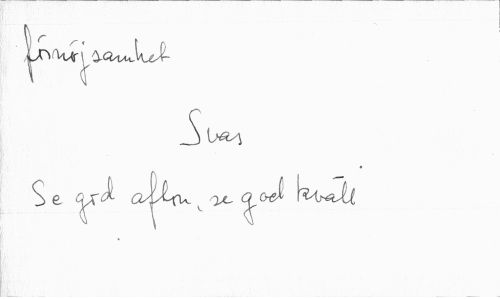 förnöjsamhet
Svar
Se god afton, se god kväll